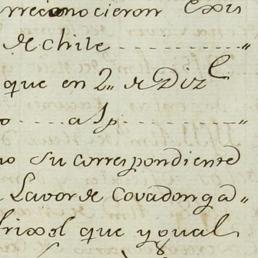 rreconocieron Exis
de Chile
que en 2,, de Diz.l
o a 1 p.
no su correspondiente
Lavor de Covadonga-
frixol que y qual